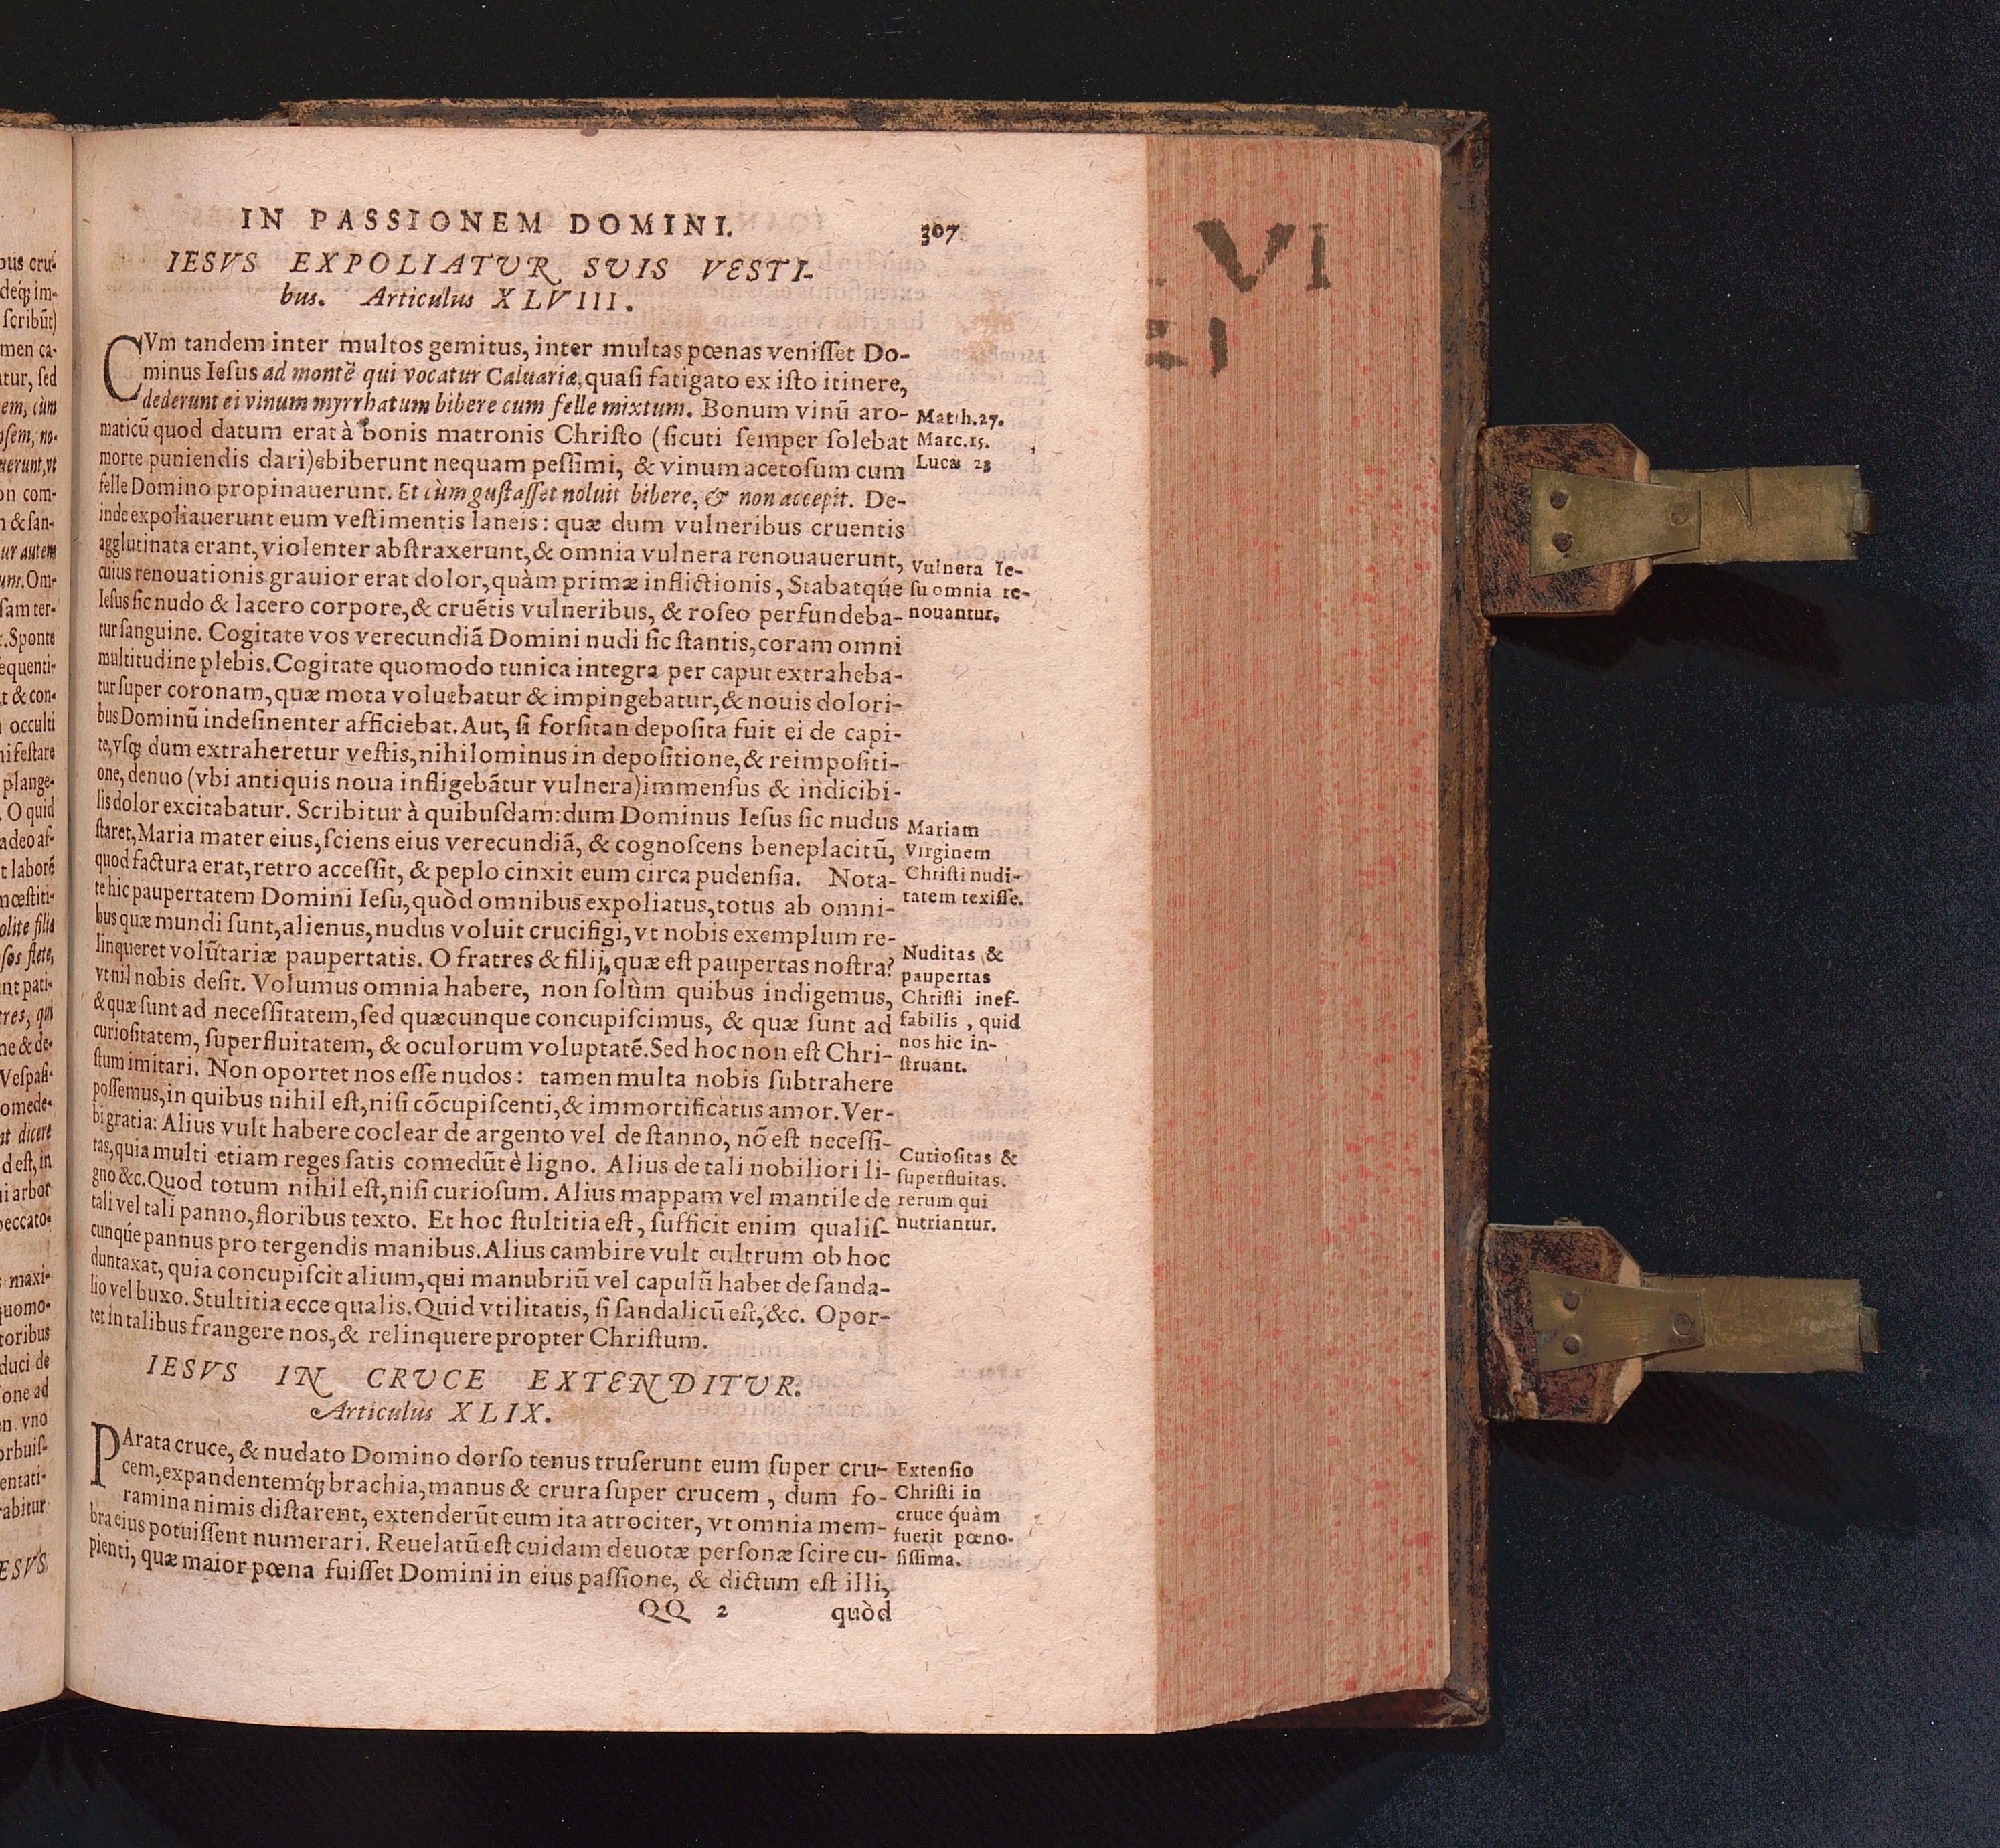 IN PASSIONEM DOMINI. 307
IESVS EXPOLIATVR SVIS VESTI-
bus. Articulus XLVIII.
CVm tandem inter multos gemitus, inter multas pœnas veniſſet Do-
minus Ieſus ad montẽ qui vocatur Caluariæ, quaſi fatigato ex iſto itinere,
dederunt ei vinum myrrhatum bibere cum felle mixtum. Bonum vinũ aro-
maticũ quod datum erat à bonis matronis Chriſto (ſicuti ſemper ſolebat
morte puniendis dari) ebiberunt nequam peſſimi, & vinum acetoſum cum
felle Domino propinauerunt. Et cùm guſtaſſet noluit bibere, & non accepit. De-
inde expoliauerunt eum veſtimentis laneis: quæ dum vulneribus cruentis
agglutinata erant, violenter abſtraxerunt, & omnia vulnera renouauerunt,
cuius renouationis grauior erat dolor, quàm primæ inflictionis, Stabatqúe
Ieſus ſic nudo & lacero corpore, & cruẽtis vulneribus, & roſeo perfundeba-
tur ſanguine. Cogitate vos verecundiã Domini nudi ſic ſtantis, coram omni
multitudine plebis. Cogitate quomodo tunica integra per caput extraheba-
tur ſuper coronam, quæ mota voluebatur & impingebatur, & nouis dolori-
bus Dominũ indeſinenter afficiebat. Aut, ſi forſitan depoſita fuit ei de capi-
te, vſq; dum extraheretur veſtis, nihilominus in depoſitione, & reimpoſiti-
one, denuo (vbi antiquis noua infligebãtur vulnera) immenſus & indicibi-
lis dolor excitabatur. Scribitur à quibuſdam: dum Dominus Ieſus ſic nudus
ſtaret, Maria mater eius, ſciens eius verecundiã, & cognoſcens beneplacitũ,
quod factura erat, retro acceſſit, & peplo cinxit eum circa pudenſia. Nota-
te hic paupertatem Domini Ieſu, quòd omnibus expoliatus, totus ab omni-
bus quæ mundi ſunt, alienus, nudus voluit crucifigi, vt nobis exemplum re-
linqueret volũtariæ paupertatis. O fratres & filij, quæ eſt paupertas noſtra?
vt nil nobis deſit. Volumus omnia habere, non ſolùm quibus indigemus,
& quæ ſunt ad neceſſitatem, ſed quæcunque concupiſcimus, & quæ ſunt ad
curioſitatem, ſuperfluitatem, & oculorum voluptatẽ. Sed hoc non eſt Chri-
ſtum imitari. Non oportet nos eſſe nudos: tamen multa nobis ſubtrahere
poſſemus, in quibus nihil eſt, niſi cõcupiſcenti, & immortificatus amor. Ver-
bi gratia: Alius vult habere coclear de argento vel de ſtanno, nõ eſt neceſſi-
tas, quia multi etiam reges ſatis comedũt è ligno. Alius de tali nobiliori li-
gno &c. Quod totum nihil eſt, niſi curioſum. Alius mappam vel mantile de
tali vel tali panno, floribus texto. Et hoc ſtultitia eſt, ſufficit enim qualiſ-
cunqúe pannus pro tergendis manibus. Alius cambire vult cultrum ob hoc
duntaxat, quia concupiſcit alium, qui manubriũ vel capulũ habet de ſanda-
lio vel buxo. Stultitia ecce qualis. Quid vtilitatis, ſi ſandalicũ eſt, &c. Opor-
tet in talibus frangere nos, & relinquere propter Chriſtum.
IESVS IN CRVCE EXTENDITVR.
Articulus XLIX.
PArata cruce, & nudato Domino dorſo tenus truſerunt eum ſuper cru-
cem, expandentemq́; brachia, manus & crura ſuper crucem, dum fo-
ramina nimis diſtarent, extenderũt eum ita atrociter, vt omnia mem-
bra eius potuiſſent numerari. Reuelatũ eſt cuidam deuotæ perſonæ ſcire cu-
pienti, quæ maior pœna fuiſſet Domini in eius paſſione, & dictum eſt illi,
QQ 2 quòd
Matth.27.
Marc.15.
Lucæ 23
Vulnera Ie-
ſu omnia re-
nouantur.
Mariam
Virginem
Chriſti nudi-
tatem texiſſe.
Nuditas &
paupertas
Chriſti inef-
fabilis, quid
nos hic in-
ſtruant.
Curioſitas &
ſuperfluitas.
rerum qui
nutriantur.
Extenſio
Chriſti in
cruce quàm
fuerit pœno-
ſiſſima.
VI